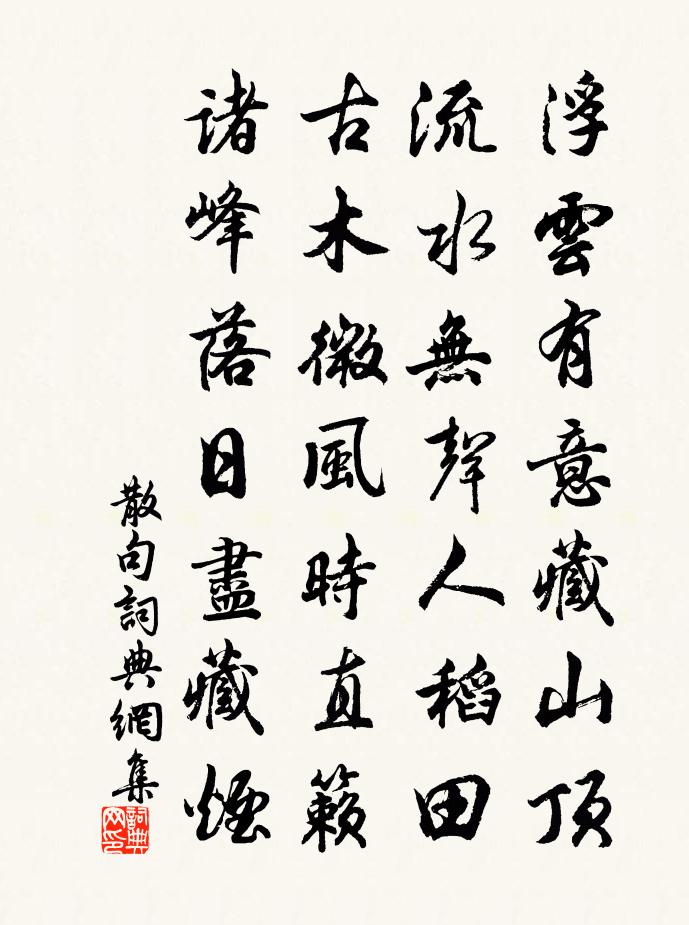 浮雲有意藏山頂
流水無聲人稻田
古木微風時直籟
諸峰落日盡藏煙
散句詞典網集
詞典网印